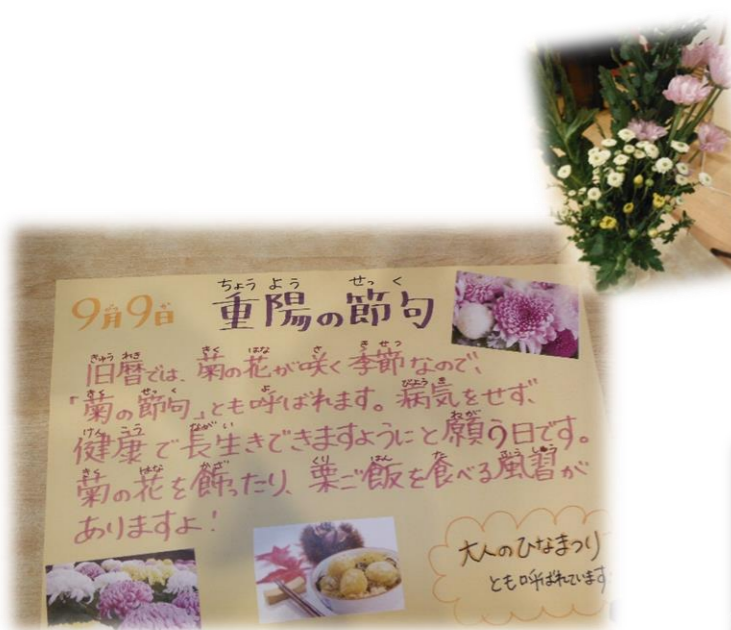 9月9日 重陽の節句
旧暦では、菊の花が咲く季節なので、
「菊の節句」とも呼ばれます。病気をせず、
健康で長生きできますようにと願う日です。
菊の花を飾ったり、栗ご飯を食べる風習が
ありますよ！
大人のひなまつり
とも呼ばれています